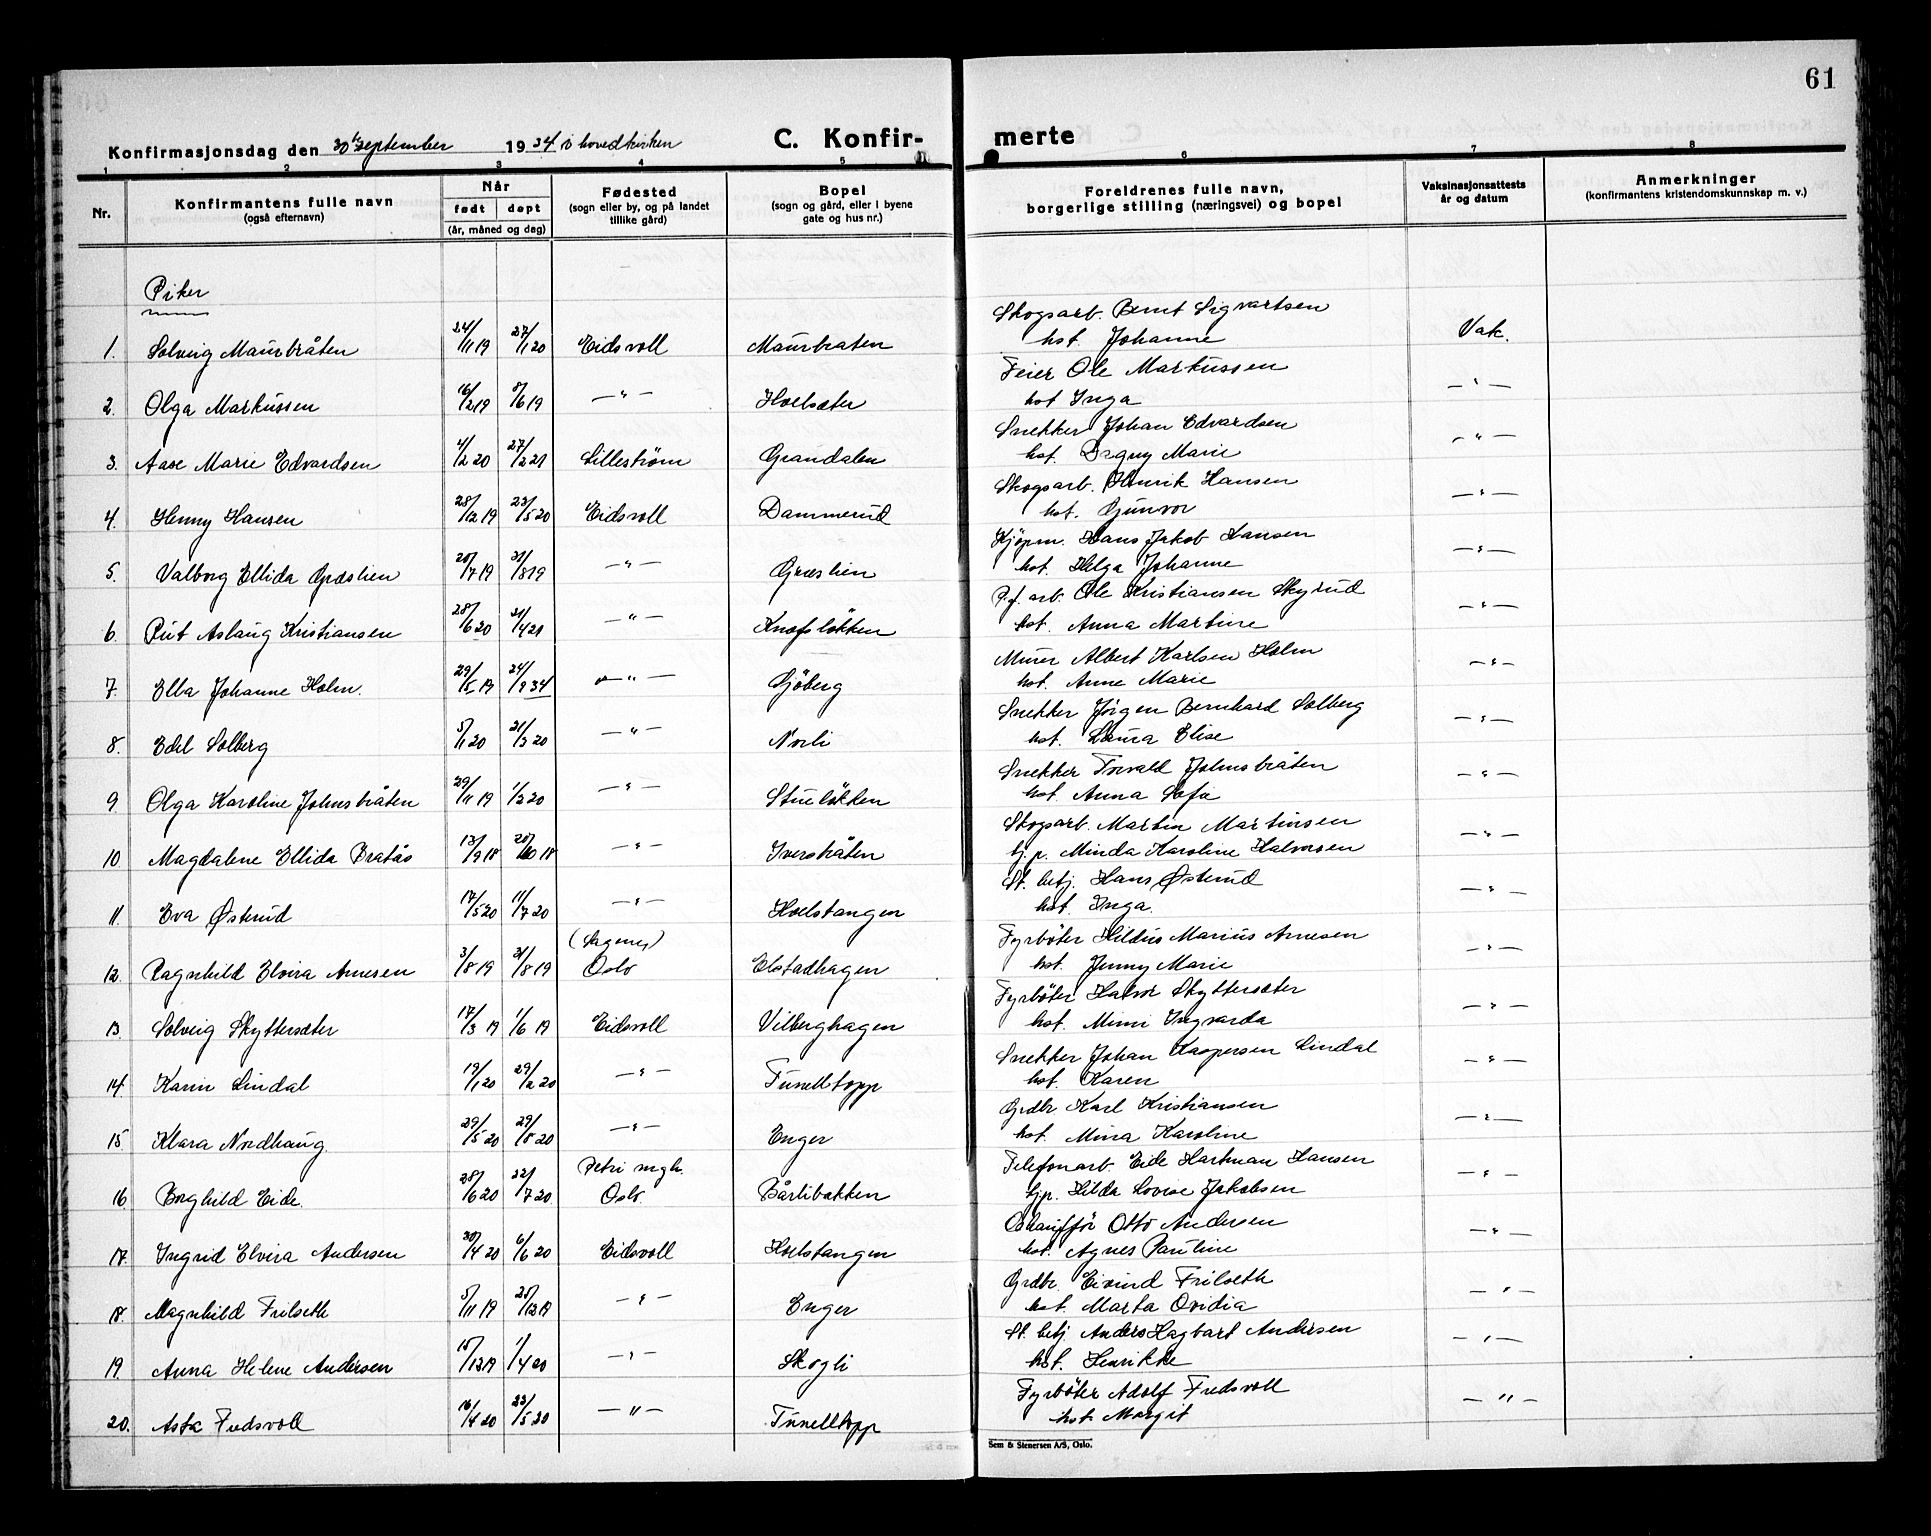 61
Konfirmasjonsdag den 30te september 1934 i hovedkirken
C. Konfirmerte
1 2 3 4 5 6 7 8
Nr. Konfirmantens fulle navn (også efternavn) Når født døpt (år, måned og dag) Fødested (sogn eller by, og på landet tillike gård) Bopel (sogn og gård, eller i byene gate og hus nr.) Foreldrenes fulle navn, borgerlige stilling (næringsvei) og bopel Vaksinasjonsattests år og datum Anmerkninger (konfirmantens kristendomskunnskap m. v.)
Piker
Skogsarb. Bernt Sigvartsen
1. Solveig Maurbråten 24/11 19 27/1 20 Eidsvoll Maurbraten hst. Johanne Vak.
Feier Ole Markussen
2. Olga Markussen 16/2 19 5/6 19 — " — Hoelsæter hst Inga — " —
Snekker Johan Edvardsen
3. Aase Marie Edvardsen 4/2 20 27/2 21 Lillestrøm Grandalen hst. Dagny Marie — " —
Skogsarb. Henrik Hansen
4. Henny Hansen 28/12 19 23/5 20 Eidsvoll Dammerud hst. Gunvor — " —
Kjøpm. Hans Jakob Hansen
5. Valborg Ellida Græslien 20/7 19 31/8 19 — " — Græslien hst. Helga Johanne — " —
P.f. arb. Ole Kristiansen Skyrud
6. Rut Aslaug Kristiansen 28/6 20 21/4 21 — " — Knofsløkken hst. Anna Martine — " —
Murer Albert Karlsen Holm
7. Ella Johanne Holm. 29/5 19 24/9 34 — " — Sjöberg hst. Anne Marie — " —
Snekker Jörgen Bernhard Solberg
8. Edel Solberg 5/11 20 21/3 20 — " — Norli hst. Laura Elise — " —
Snekker Torvald Johnsbråten
9. Olga Karoline Johnsbråten 29/11 19 1/2 20 — " — Stueløkken hst. Anna Sofie — " —
Skogsarb. Martin Martinsen
10 Magdalene Ellida Bratås 13/9 18 20/10 18 — " — Iversbråten Gj. p. Minda Karoline Halvorsen — " —
St. betj. Hans Østerud
11. Eva Østerud 17/5 20 11/7 20 — " — Hoelstangen hst. Inga. — " —
(Sagenes) Fyrbøter Hildus Marius Arnesen
12. Ragnhild Elvira Arnesen 3/8 19 31/8 19 Oslo Elstadhagen hst. Jenny Marie — " —
Fyrbøter Halvor Skyttersæter
13. Solveig Skyttersæter 17/3 19 1/6 19 Eidsvoll Vilberghagen hst. Mimi Ingvarda — " —
Snekker Johan Kaspersen Lindal
14. Karin Lindal 19/1 20 29/2 20 — " — Tunelltopp hst. Karen — " —
Grdbr. Karl Kristiansen
15. Klara Nordhaug. 29/5 20 29/8 20 — " — Enger hst. Mina Karoline — " —
Petri mgh. Telefonarb. Eide Hartman Hansen
16. Borghild Eide. 28/6 20 22/7 20 Oslo. Bårlibakken Gj.p. Hilda Lovise Jakobsen — " —
Chauffør Otto Andersen
17. Ingrid Elvira Andersen 30/4 20 6/6 20 Eidsvoll Hoelstangen hst. Agnes Pauline — " —
Grdbr. Eivind Frilseth
18. Magnhild Frilseth 5/11 19 25/12 19 — " — Enger hst. Marta Ovidia — " —
St. betj. Anders Hagbart Andersen
19. Anna Helene Andersen 15/12 19 1/4 20 — " — Skogli hst. Henrikke — " —
Fyrbøter Adolf Fredsvoll
20. Asta Fredsvoll 16/4 20 23/5 20 — " — Tunelltopp hst. Margit — " —
Sem & Stenersen A/S, Oslo.